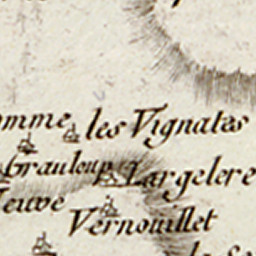 omme les Vignates
Granloup Largelere
Neuve
Vernouillet